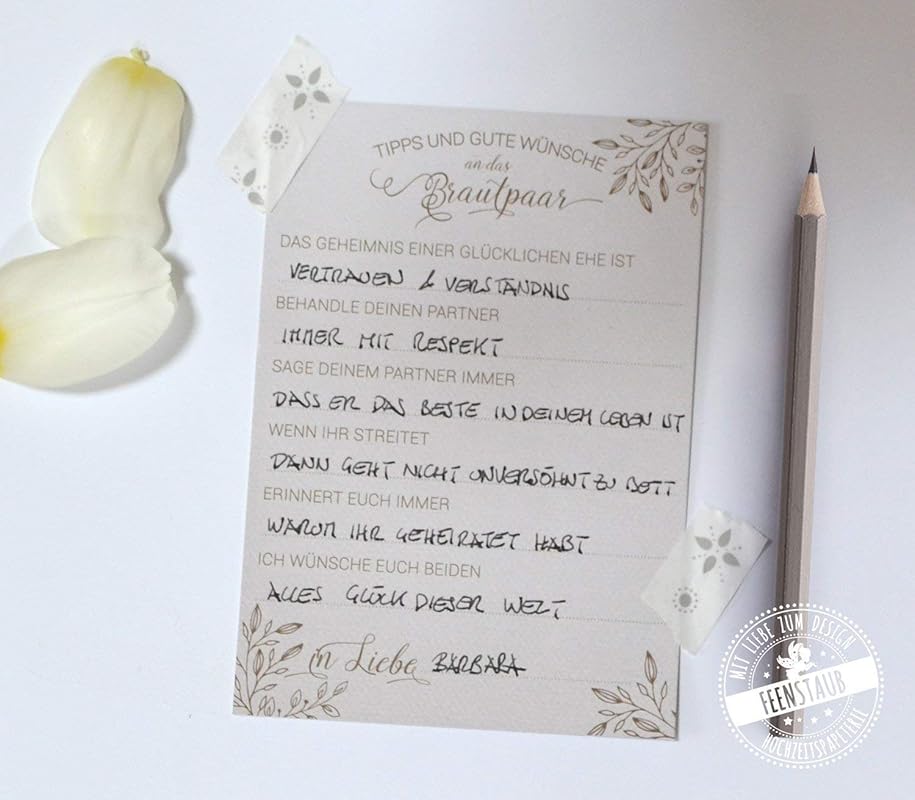 TIPPS UND GUTE WÜNSCHE
an das
Brautpaar
DAS GEHEIMNIS EINER GLÜCKLICHEN EHE IST
VERTRAUEN & VERSTÄNDNIS
BEHANDLE DEINEN PARTNER
IMMER MIT RESPEKT
SAGE DEINEM PARTNER IMMER
DASS ER DAS BESTE IN DEINEM LEBEN IST
WENN IHR STREITET
DANN GEHT NICHT UNVERSÖHNT ZU BETT
ERINNERT EUCH IMMER
WARUM IHR GEHEIRATET HABT
ICH WÜNSCHE EUCH BEIDEN
ALLES GLÜCK DIESER WELT
in Liebe BARBARA
MIT LIEBE ZUM DESIGN
FEENSTAUB
HOCHZEITSPAPETERIE